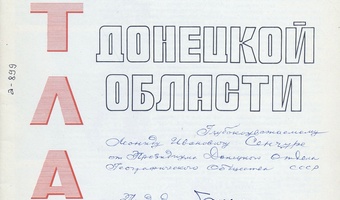 ТЛА
ДОНЕЦКОЙ
ОБЛАСТИ
а-899
Глубокоуважаемому
Леониду Ивановичу Сенчуре
от Президиума Донецкого отдела
Географического Общества СССР